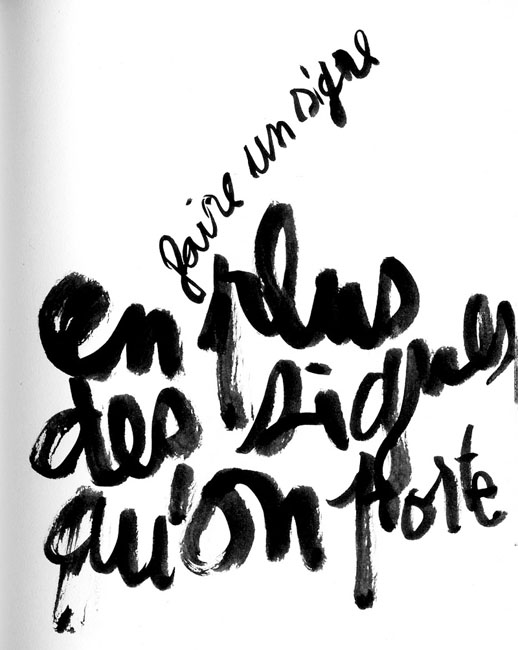 faire un signe
en plus
des signes
qu'on porte